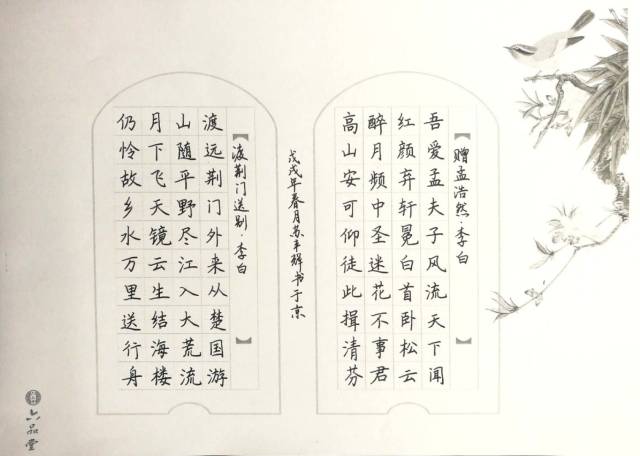 赠孟浩然·李白
吾爱孟夫子风流天下闻
红颜弃轩冕白首卧松云
醉月频中圣迷花不事君
高山安可仰徒此揖清芬
戊戌年春月苏书于京
渡荆门送别·李白
渡远荆门外来从楚国游
山随平野尽江入大荒流
月下飞天镜云生结海楼
仍怜故乡水万里送行舟
六品堂